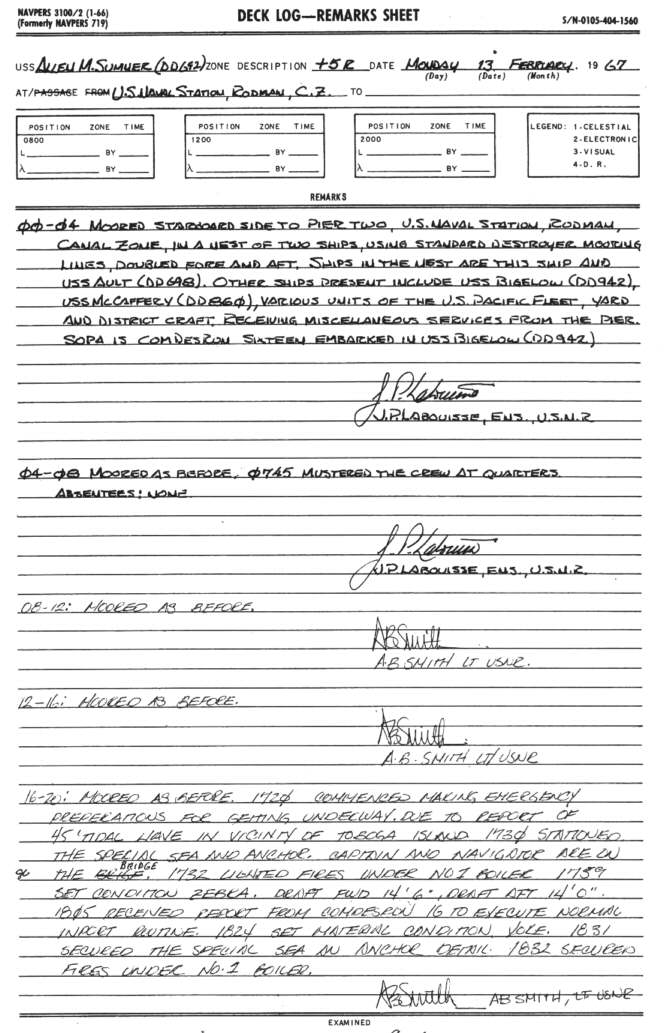 NAVPERS 3100/2 (1-66)
(Formerly NAVPERS 719)
DECK LOG—REMARKS SHEET
S/N-0105-404-1560
USS ALLEN M. SUMNER (DD692) ZONE DESCRIPTION +5R DATE MONDAY 13 FEBRUARY. 19 67
(Day) (Date) (Month)
AT/PASSAGE FROM U.S. NAVAL STATION, RODMAN, C.Z. TO
POSITION ZONE TIME
0800
L BY
λ BY
POSITION ZONE TIME
1200
L BY
λ BY
POSITION ZONE TIME
2000
L BY
λ BY
LEGEND: 1-CELESTIAL
2-ELECTRONIC
3-VISUAL
4-D. R.
REMARKS
00-04 MOORED STARBOARD SIDE TO PIER TWO, U.S. NAVAL STATION, RODMAN,
CANAL ZONE, IN A NEST OF TWO SHIPS, USING STANDARD DESTROYER MOORING
LINES, DOUBLED FORE AND AFT. SHIPS IN THE NEST ARE THIS SHIP AND
USS AULT (DD698). OTHER SHIPS PRESENT INCLUDE USS BIGELOW (DD942),
USS MCCAFFERY (DD860), VARIOUS UNITS OF THE U.S. PACIFIC FLEET, YARD
AND DISTRICT CRAFT, RECEIVING MISCELLANEOUS SERVICES FROM THE PIER.
SOPA IS COMDESRON SIXTEEN EMBARKED IN USS BIGELOW (DD942)
J. P. Labouisse
J.P. LABOUISSE, ENS., U.S.N.R
04-08 MOORED AS BEFORE, 0745 MUSTERED THE CREW AT QUARTERS
ABSENTEES: NONE
J. P. Labouisse
J.P. LABOUISSE, ENS., U.S.N.R.
08-12: MOORED AS BEFORE.
AB Smith
AB SMITH LT USNR.
12-16: MOORED AS BEFORE.
AB Smith
A.B. SMITH LT USNR
16-20: MOORED AS BEFORE. 1720 COMMENCED MAKING EMERGENCY
PREPERATIONS FOR GETTING UNDERWAY. DUE TO REPORT OF
45' TIDAL WAVE IN VICINITY OF TOBOGA ISLAND 1730 STATIONED
THE SPECIAL SEA AND ANCHOR. CAPTAIN AND NAVIGATOR ARE ON
THE BRIDGE. 1732 LIGHTED FIRES UNDER NO 1 BOILER 1739
SET CONDITION ZEBRA. DRAFT FWD 14'6", DRAFT AFT 14'0".
1805 RECEIVED REPORT FROM COMDESRON 16 TO EXECUTE NORMAL
INPORT ROUTINE. 1824 SET MATERIAL CONDITION YOKE. 1831
SECURED THE SPECIAL SEA AN ANCHOR DETAIL. 1832 SECURED
FIRES UNDER NO. 1 BOILER.
AB Smith AB SMITH, LT USNR
EXAMINED